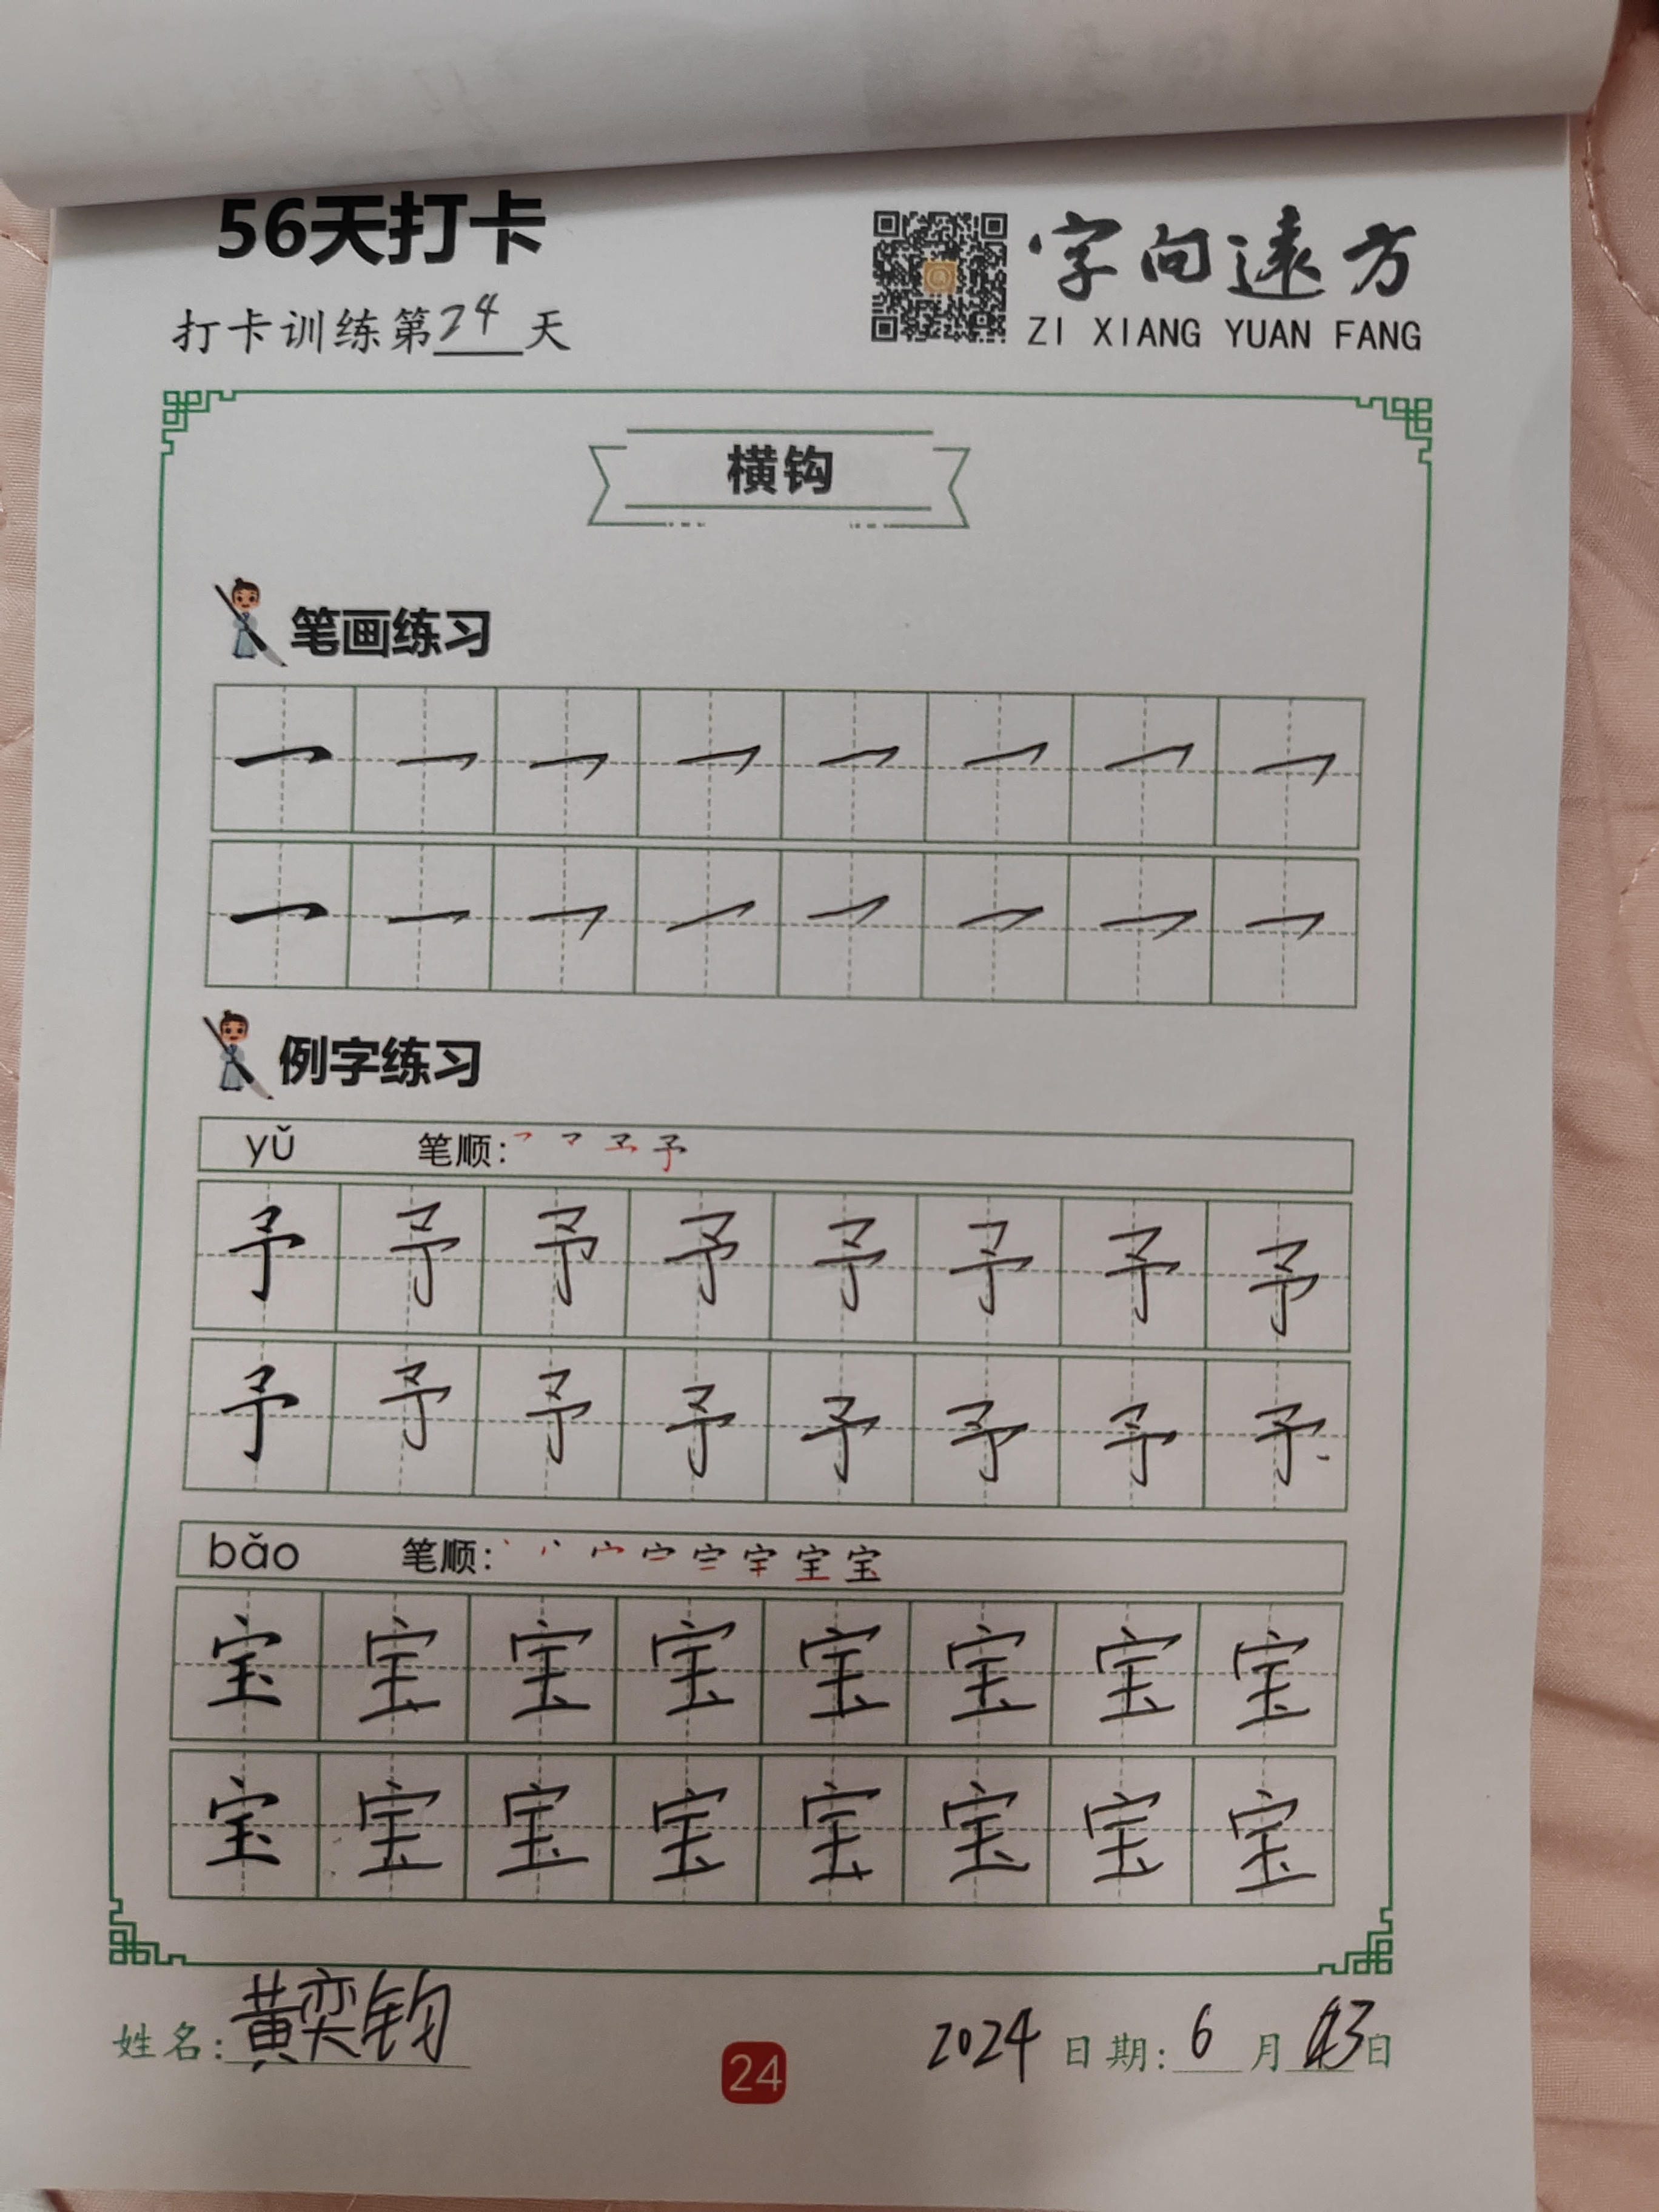 56天打卡
字向遠方
打卡训练第24天
ZI XIANG YUAN FANG
横钩
笔画练习
例字练习
yǔ 笔顺:
予 予 予 予 予 予 予 予
予 予 予 予 予 予 予 予
bǎo 笔顺:
宝 宝 宝 宝 宝 宝 宝 宝
宝 宝 宝 宝 宝 宝 宝 宝
姓名:黄奕钧
24
2024 日期:6月13日